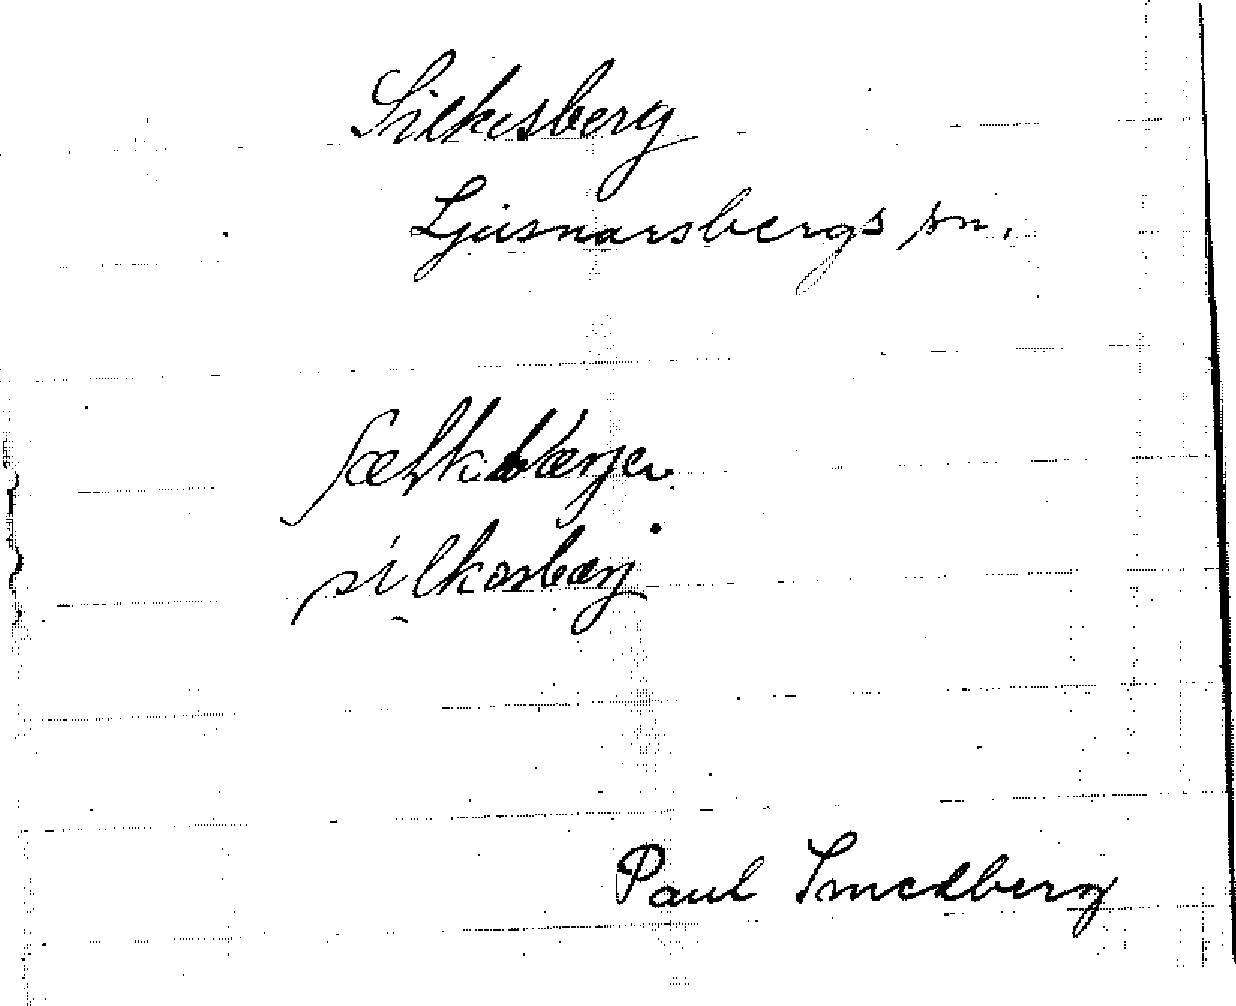 Silkesberg
Ljusnarsbergs sn.
silkosbærj
Paul Smedberg